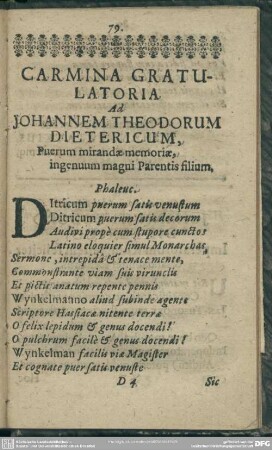 79.
CARMINA GRATU-
LATORIA
Ad
JOHANNEM THEODORUM
DIETERICUM,
Puerum mirandæ memoriæ,
ingenuum magni Parentis filium,
Phaleuc.
DItricum puerum satis venustum
Ditricum puerum satis decorum
Audivi propè cum stupore cunctos
Latino eloquier simul Monarchas,
Sermone, intrepidâ & tenace mente,
Commonstrante viam suis virunclis
Et pictis anatum repente pennis
Wynkelmanno aliud subinde agente
Scriptore Hassiacæ nitente terræ
O felix lepidum & genus docendi!
O pulchrum facilè & genus docendi!
Wynkelman facilis viæ Magister
Et cognate puer satis venuste
D 4. Sic
DFG